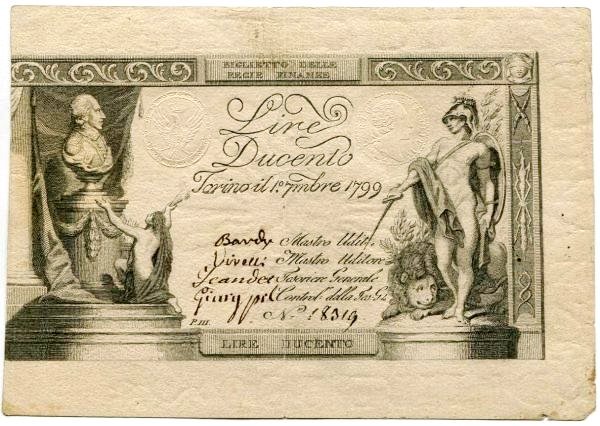 BIGLIETTO DELLE
REGIE FINANZE
Lire
Ducento
Torino il 1º 7mbre 1799
Mastro Udit.
Mastro Uditore
Tesoriere Generale
Control. della Tes. Gle
Nº 18319
P.III.
LIRE DUCENTO